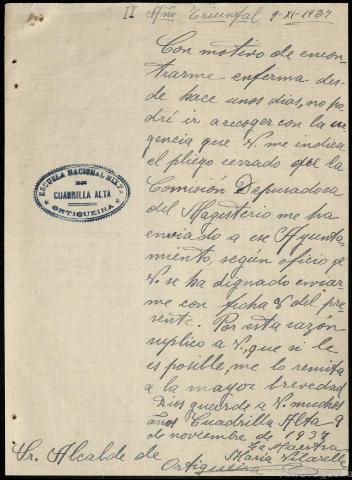 II Año Triunfal 9-XI-1937
Con motivo de encon
trarme enferma des-
de hace unos dias, no po
dré ir a recoger con la ur
gencia que V. me indica
el pliego cerrado que la
Comisión Depuradora
del Magisterio me ha
enviado a ese Ayunta-
miento, según oficio qe
V. se ha dignado enviar-
me con fecha 8 del pre
sente. Por esta razón
suplico a V., que si le
es posible, me lo remita
a la mayor brevedad
Dios guarde a V. muchos
años Cuadrilla Alta 9
de noviembre de 1937
La Maestra
María
Sr. Alcalde de
Ortigueira
ESCUELA NACIONAL MIXTA
DE
CUADRILLA ALTA
ORTIGUEIRA